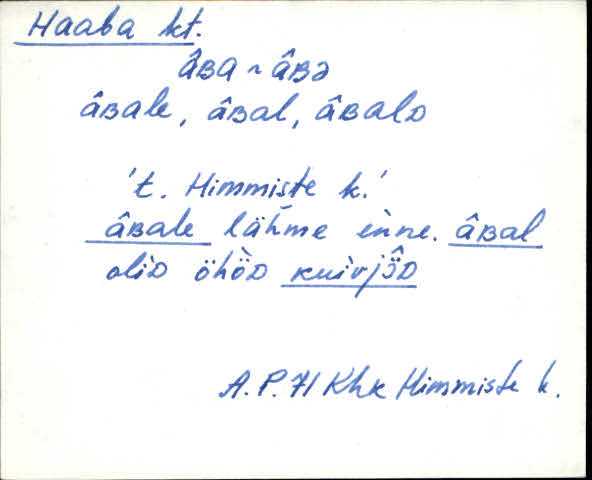 Haaba kt.
âʙa ~ âʙə
âʙale, âʙal, âʙalᴅ
't. Himmiste k.'
âʙale läh̄me ènne. âʙal
oliᴅ öhö̀ᴅ kuivjö̂ᴅ
A. P. 71 Khk Himmiste k.